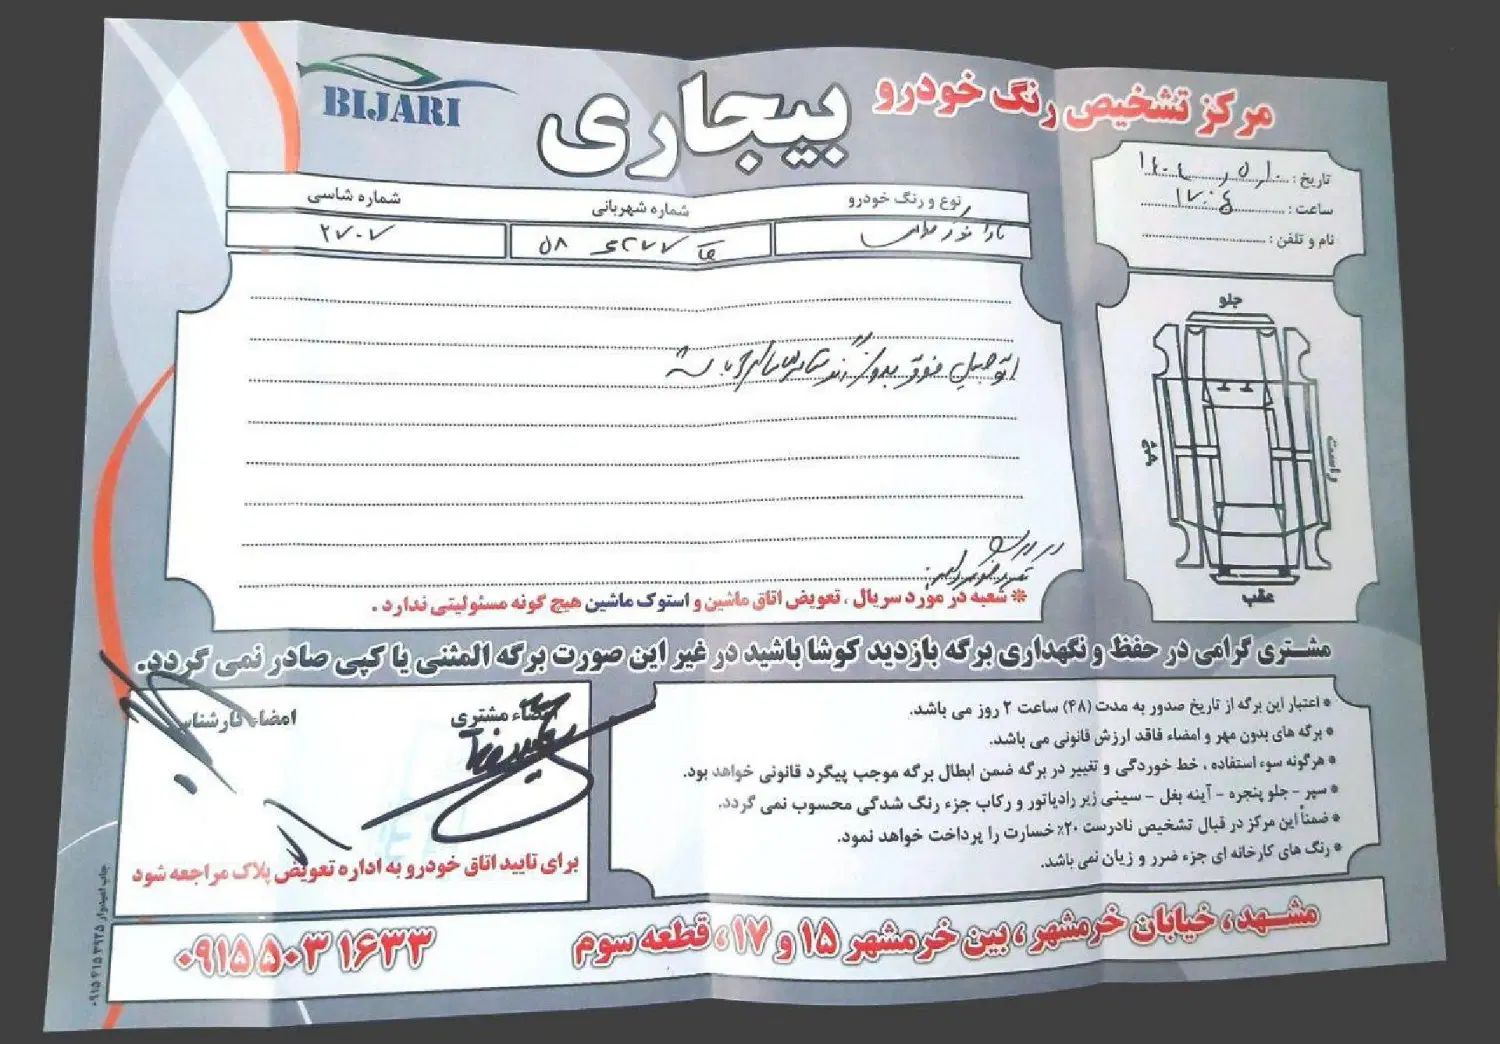 BIJARI
مرکز تشخیص رنگ خودرو
بیجاری
تاریخ :
ساعت : ۱۷:۰۴
نام و تلفن :
نوع و رنگ خودرو
شماره شهربانی
شماره شاسی
۲۷۰۷
جلو
راست
چپ
عقب
اتومبیل فوق بدون رنگ
* شعبه در مورد سریال ، تعویض اتاق ماشین و استوک ماشین هیچ گونه مسئولیتی ندارد .
مشتری گرامی در حفظ و نگهداری برگه بازدید کوشا باشید در غیر این صورت برگه المثنی یا کپی صادر نمی گردد.
* اعتبار این برگه از تاریخ صدور به مدت (۴۸) ساعت ۲ روز می باشد.
* برگه های بدون مهر و امضاء فاقد ارزش قانونی می باشد.
* هرگونه سوء استفاده ، خط خوردگی و تغییر در برگه ضمن ابطال برگه موجب پیگرد قانونی خواهد بود.
* سپر - جلو پنجره - آینه بغل - سینی زیر رادیاتور و رکاب جزء رنگ شدگی محسوب نمی گردد.
* ضمناً این مرکز در قبال تشخیص نادرست ۲۰٪ خسارت را پرداخت خواهد نمود.
* رنگ های کارخانه ای جزء ضرر و زیان نمی باشد.
امضاء مشتری
امضاء کارشناس
برای تایید اتاق خودرو به اداره تعویض پلاک مراجعه شود
مشهد، خیابان خرمشهر ، بین خرمشهر ۱۵ و ۱۷، قطعه سوم
۰۹۱۵ ۵۰۳ ۱۶۳۳
چاپ امیدوار ۳۹۲۵ ۴۱۵ ۰۹۱۵